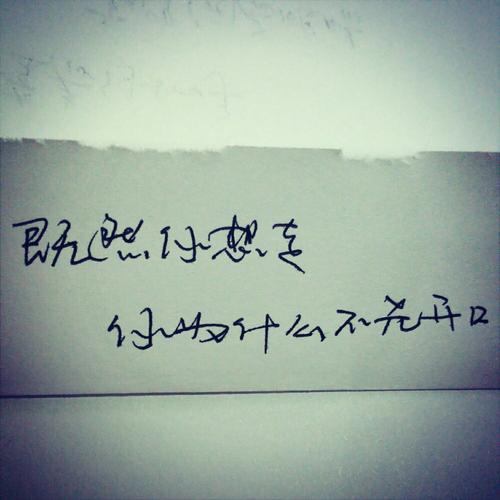 既然你想走
你为什么不先开口